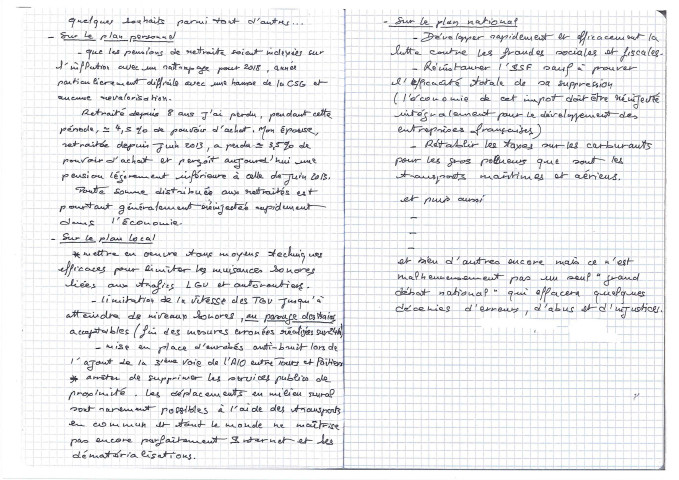 quelques souhaits parmi tout d'autres...
- Sur le plan personnel
- que les pensions de retraite soient indexées sur
l'inflation avec un rattrapage pour 2018, année
particulièrement difficile avec une hausse de la CSG et
aucune revalorisation.
Retraité depuis 8 ans j'ai perdu, pendant cette
période, ≃ 4,5 % de pouvoir d'achat. Mon épouse,
retraitée depuis juin 2013, a perdu ≃ 3,5 % de
pouvoir d'achat et perçoit aujourd'hui une
pension légèrement inférieure à celle de juin 2013.
Toute somme distribuée aux retraités est
pourtant généralement réinjectée rapidement
dans l'économie.
- Sur le plan local
* mettre en oeuvre tous moyens techniques
efficaces pour limiter les nuisances sonores
liées aux trafics LGV et autoroutiers.
- limitation de la vitesse des TGV jusqu'à
atteindre de niveaux sonores, au passage des trains
acceptables (fin des mesures erronées réalisées sur 24h)
- mise en place d'enrobés anti-bruit lors de
l'ajout de la 3ième voie de l'A10 entre Tours et Poitiers
* arrêter de supprimer les services publics de
proximité. Les déplacements en milieu rural
sont rarement possibles à l'aide des transports
en commun et tout le monde ne maîtrise
pas encore parfaitement Internet et les
dématérialisations.
- Sur le plan national
- Développer rapidement et efficacement la
lutte contre les fraudes sociales et fiscales.
- Réinstaurer l'ISF sauf à prouver
l'efficacité totale de sa suppression
(l'économie de cet impot doit être réinjectée
intégralement pour le développement des
entreprises françaises)
- Rétablir les taxes sur les carburants
pour les gros pollueurs que sont les
transports maritimes et aériens.
et puis aussi
-
-
-
et bien d'autres encore mais ce n'est
malheureusement pas un seul "grand
débat national" qui effacera quelques
décenies d'erreurs, d'abus et d'injustices.